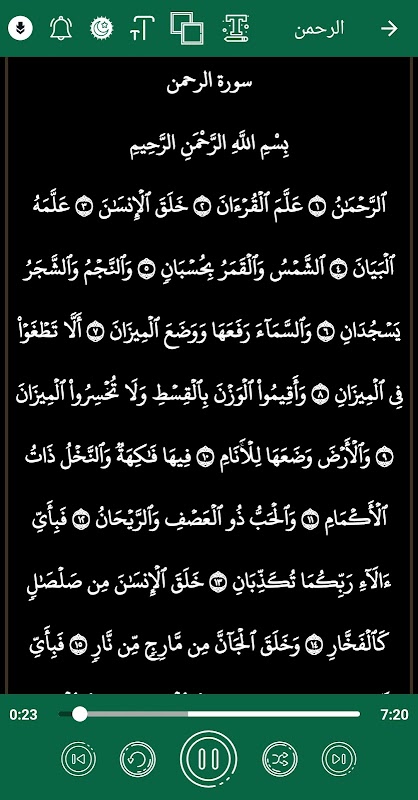 الرحمن
سورة الرحمن
بِسْمِ اللَّهِ الرَّحْمَنِ الرَّحِيمِ
ٱلرَّحْمَـٰنُ ١ عَلَّمَ ٱلْقُرْءَانَ ٢ خَلَقَ ٱلْإِنسَـٰنَ ٣ عَلَّمَهُ
ٱلْبَيَانَ ٤ ٱلشَّمْسُ وَٱلْقَمَرُ بِحُسْبَانٍ ٥ وَٱلنَّجْمُ وَٱلشَّجَرُ
يَسْجُدَانِ ٦ وَٱلسَّمَآءَ رَفَعَهَا وَوَضَعَ ٱلْمِيزَانَ ٧ أَلَّا تَطْغَوْا۟
فِى ٱلْمِيزَانِ ٨ وَأَقِيمُوا۟ ٱلْوَزْنَ بِٱلْقِسْطِ وَلَا تُخْسِرُوا۟ ٱلْمِيزَانَ
٩ وَٱلْأَرْضَ وَضَعَهَا لِلْأَنَامِ ١٠ فِيهَا فَـٰكِهَةٌ وَٱلنَّخْلُ ذَاتُ
ٱلْأَكْمَامِ ١١ وَٱلْحَبُّ ذُو ٱلْعَصْفِ وَٱلرَّيْحَانُ ١٢ فَبِأَىِّ
ءَالَآءِ رَبِّكُمَا تُكَذِّبَانِ ١٣ خَلَقَ ٱلْإِنسَـٰنَ مِن صَلْصَـٰلٍ
كَٱلْفَخَّارِ ١٤ وَخَلَقَ ٱلْجَآنَّ مِن مَّارِجٍ مِّن نَّارٍ ١٥ فَبِأَىِّ
0:23 7:20